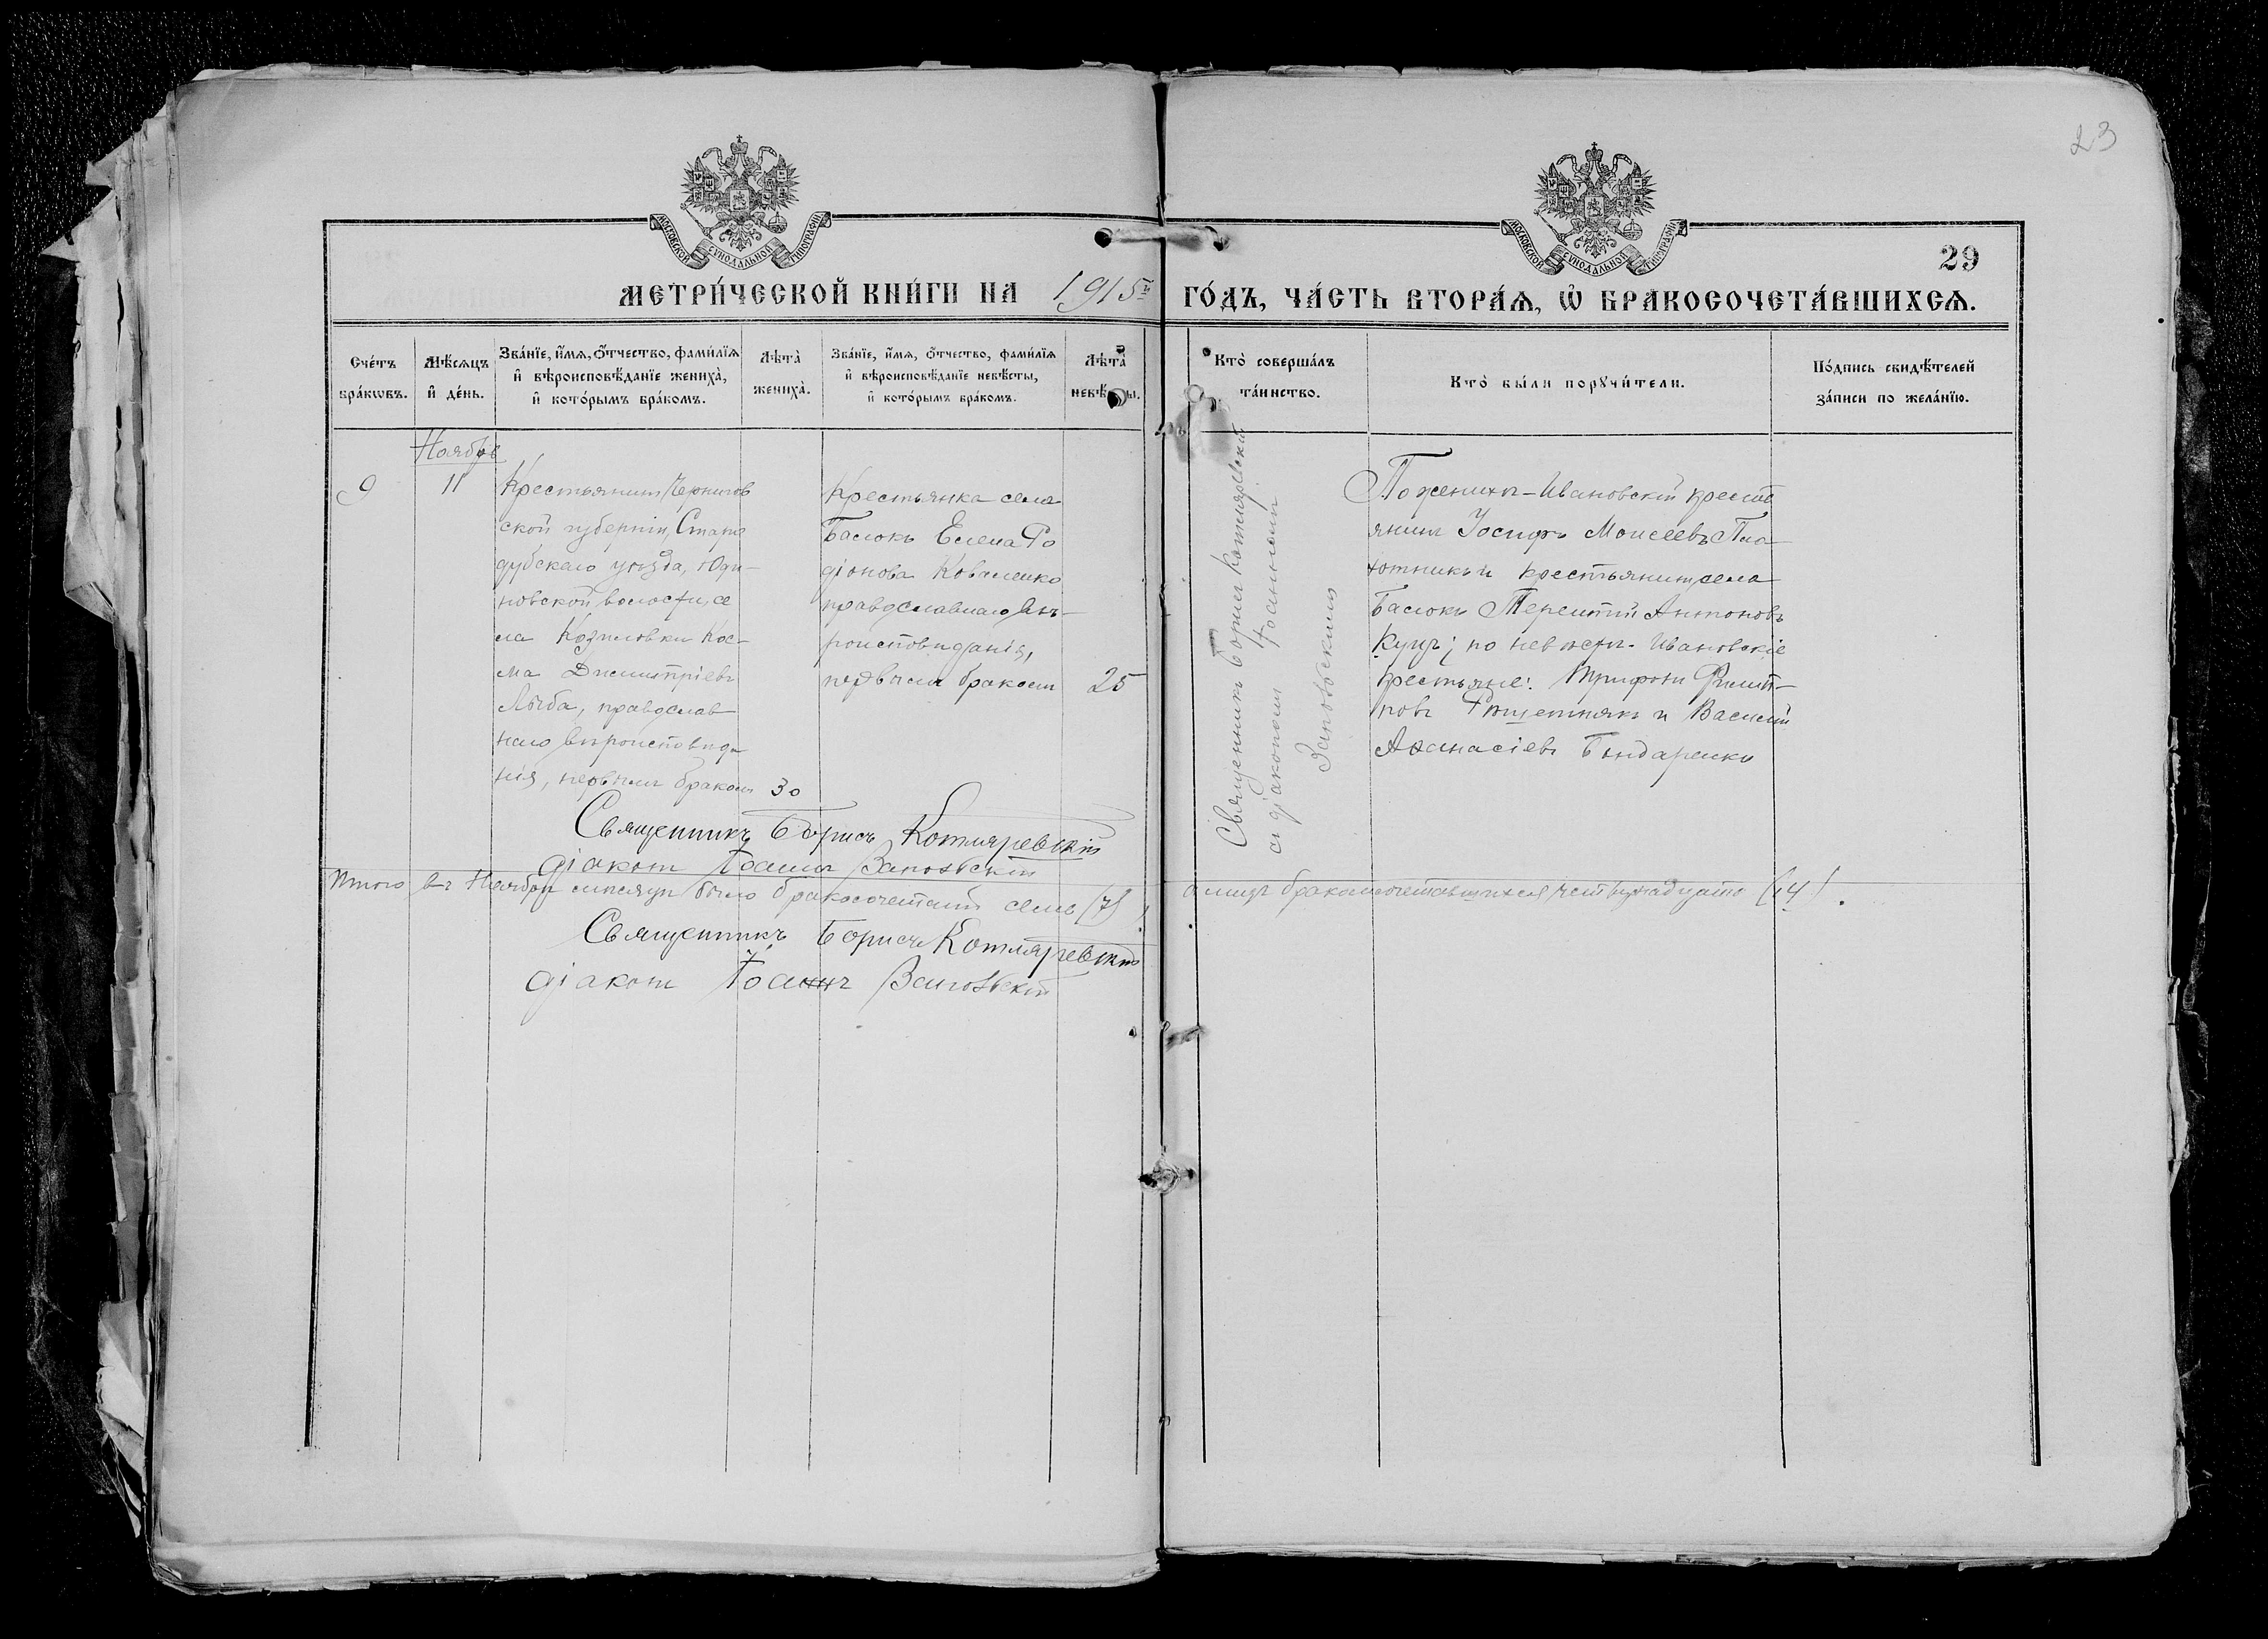 23
МОСКОВСКОЙ СѴНОДАЛЬНОЙ ТИПОГРАФІИ
МОСКОВСКОЙ СѴНОДАЛЬНОЙ ТИПОГРАФІИ
29
МЕТРИ́ЧЕСКОЙ КНИ́ГИ НА 1915й ГО́ДЪ, ЧА́СТЬ ВТОРА́Ѧ, Ѡ҆ БРАКОСОЧЕТА́ВШИХСѦ.
Сче́тъ
бра́кѡвъ.
Мѣ́сѧцъ
и҆ де́нь.
Зва́нїе, и҆́мѧ, ѻ҆́тчество, фами́лїѧ
и҆ вѣроисповѣ́данїе жениха̀,
и҆ кото́рымъ бра́комъ.
Лѣта̀
жениха̀.
Зва́нїе, и҆́мѧ, ѻ҆́тчество, фами́лїѧ
и҆ вѣроисповѣ́данїе невѣ́сты,
и҆ кото́рымъ бра́комъ.
Лѣта̀
невѣ́сты.
Кто̀ соверша́лъ
та́инство.
Кто̀ бы́ли порꙋчи́тели.
По́дпись свидѣ́телей
за́писи по жела́нїю.
Ноябрь
9
11
Крестьянинъ Чернигов
ской губерніи, Старо
дубскаго уѣзда, Юди-
новской волости, се
ла Козиловки Кос-
ма Димитріевъ
Лыба, православ
наго вѣроисповѣда
нія, первымъ бракомъ
30
Крестьянка села
Басокъ Елена Ро
діонова Коваленко
православнаго вѣ-
роисповѣданія,
первымъ бракомъ
25
Священникъ Борисъ Котляревскій
съ діакономъ Іоанномъ
Заповскимъ
По женихѣ - Ивановскій кресть
янинъ Іосифъ Моисеевъ Пло
тникъ и крестьянинъ села
Басокъ Терентій Антоновъ
Куцъ; по невѣстѣ - Ивановскіе
крестьяне: Трифонъ Филип-
повъ Рѣшетнякъ и Василій
Аѳанасіевъ Бондаренко
Священникъ Борисъ Котляревскій
діаконъ Іоаннъ
Итого въ Ноябрѣ мѣсяцѣ было бракосочетаній семь (7), а лицъ бракомсочетавшихся четырнадцать (14).
Священникъ Борисъ Котляревскій
діаконъ Іоаннъ